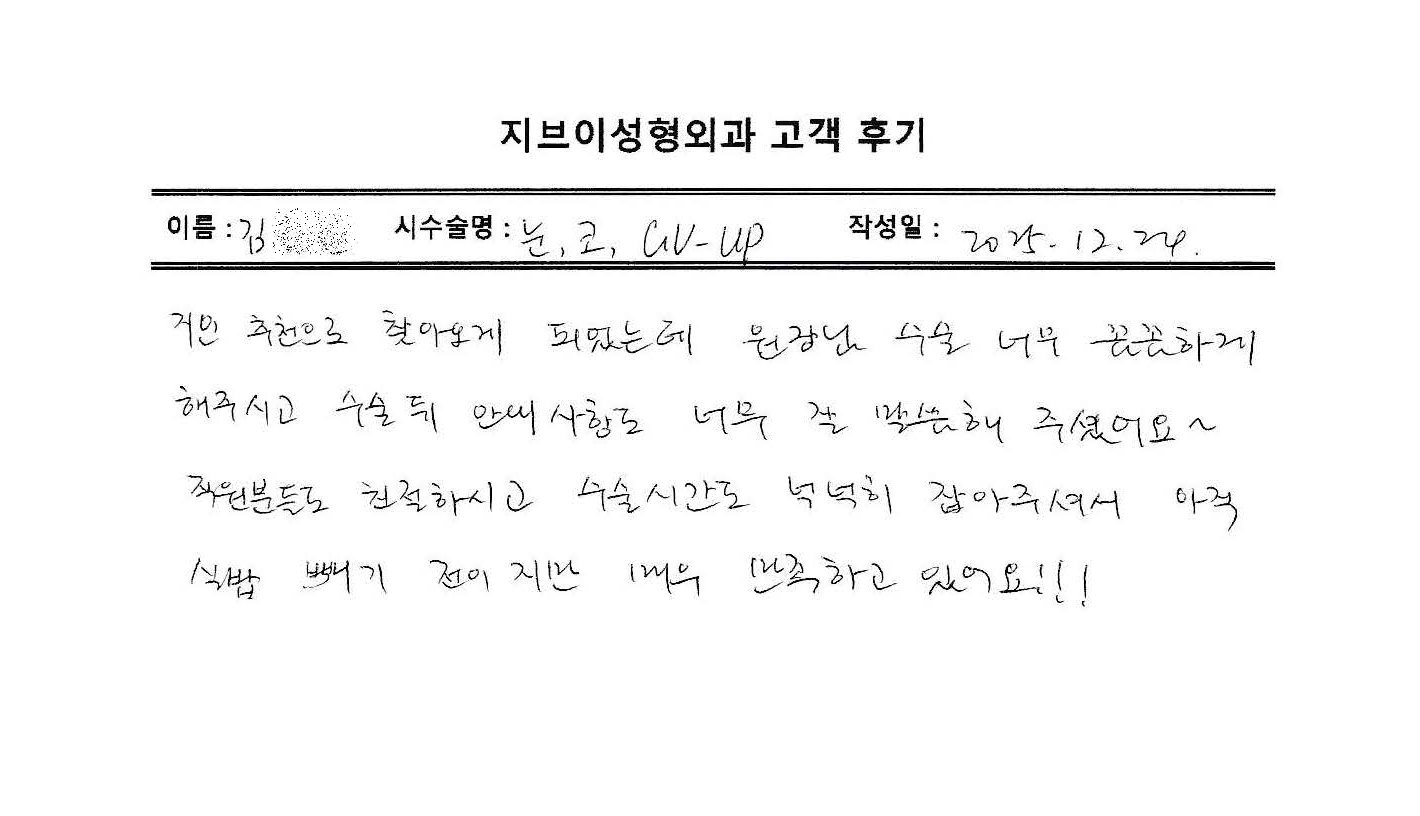 지브이성형외과 고객 후기
이름 : 김 시수술명 : 눈, 코, GV-UP 작성일 : 2025. 12. 24.
지인 추천으로 찾아오게 되었는데 원장님 수술 너무 꼼꼼하게
해주시고 수술 뒤 안내사항도 너무 잘 말씀해 주셨어요~
직원분들도 친절하시고 수술시간도 넉넉히 잡아주셔서 아직
실밥 빼기 전이지만 매우 만족하고 있어요!!!